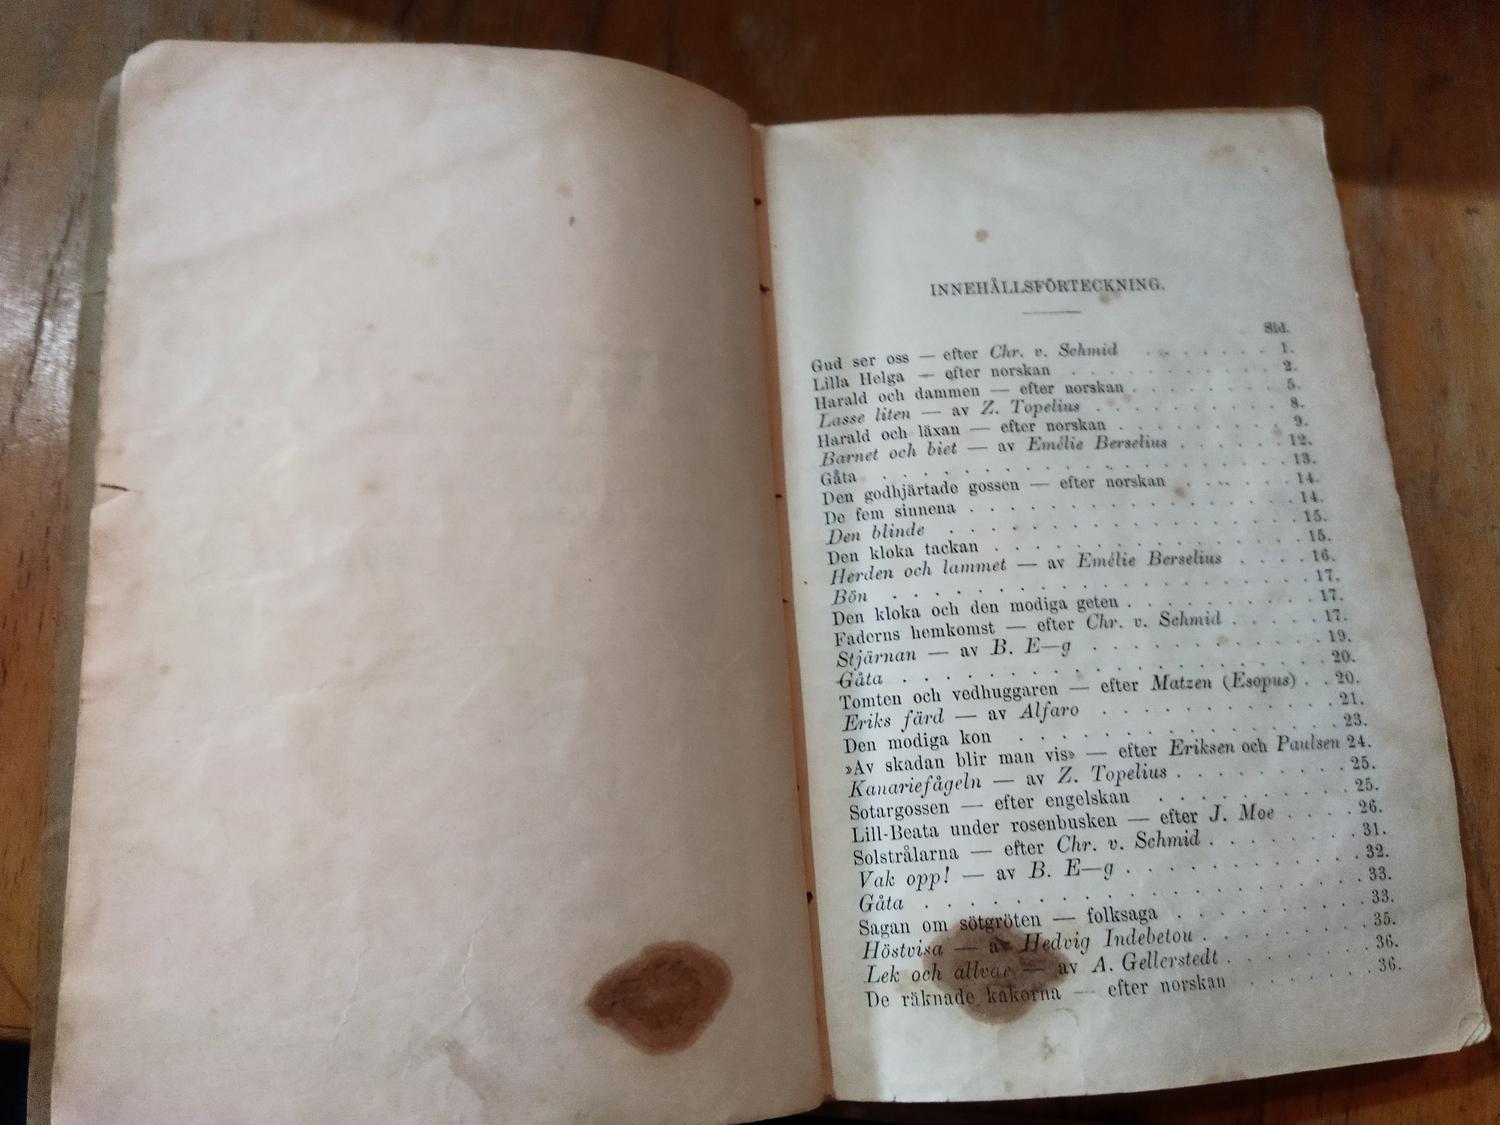 INNEHÅLLSFÖRTECKNING.
Sid.
Gud ser oss — efter Chr. v. Schmid . . . . . . . 1.
Lilla Helga — efter norskan . . . . . . . . . . 2.
Harald och dammen — efter norskan . . . . . . . 5.
Lasse liten — av Z. Topelius . . . . . . . . . 8.
Harald och läxan — efter norskan . . . . . . . . 9.
Barnet och biet — av Emélie Berselius . . . . . 12.
Gåta . . . . . . . . . . . . . . . . . 13.
Den godhjärtade gossen — efter norskan . . . . . 14.
De fem sinnena . . . . . . . . . . . . . . 14.
Den blinde . . . . . . . . . . . . . . . 15.
Den kloka tackan . . . . . . . . . . . . . 15.
Herden och lammet — av Emélie Berselius . . . . 16.
Bön . . . . . . . . . . . . . . . . . 17.
Den kloka och den modiga geten . . . . . . . . 17.
Faderns hemkomst — efter Chr. v. Schmid . . . . . 17.
Stjärnan — av B. E—g . . . . . . . . . . . 19.
Gåta . . . . . . . . . . . . . . . . . 20.
Tomten och vedhuggaren — efter Matzen (Esopus) . . 20.
Eriks färd — av Alfaro . . . . . . . . . . . 21.
Den modiga kon . . . . . . . . . . . . . . 23.
»Av skadan blir man vis» — efter Eriksen och Paulsen 24.
Kanariefågeln — av Z. Topelius . . . . . . . . 25.
Sotargossen — efter engelskan . . . . . . . . . 25.
Lill-Beata under rosenbusken — efter J. Moe . . . . 26.
Solstrålarna — efter Chr. v. Schmid . . . . . . . 31.
Vak opp! — av B. E—g . . . . . . . . . . . 32.
Gåta . . . . . . . . . . . . . . . . . 33.
Sagan om sötgröten — folksaga . . . . . . . . . 33.
Höstvisa — av Hedvig Indebetou . . . . . . . . 35.
Lek och allvar — av A. Gellerstedt . . . . . . . 36.
De räknade kakorna — efter norskan . . . . . . . 36.